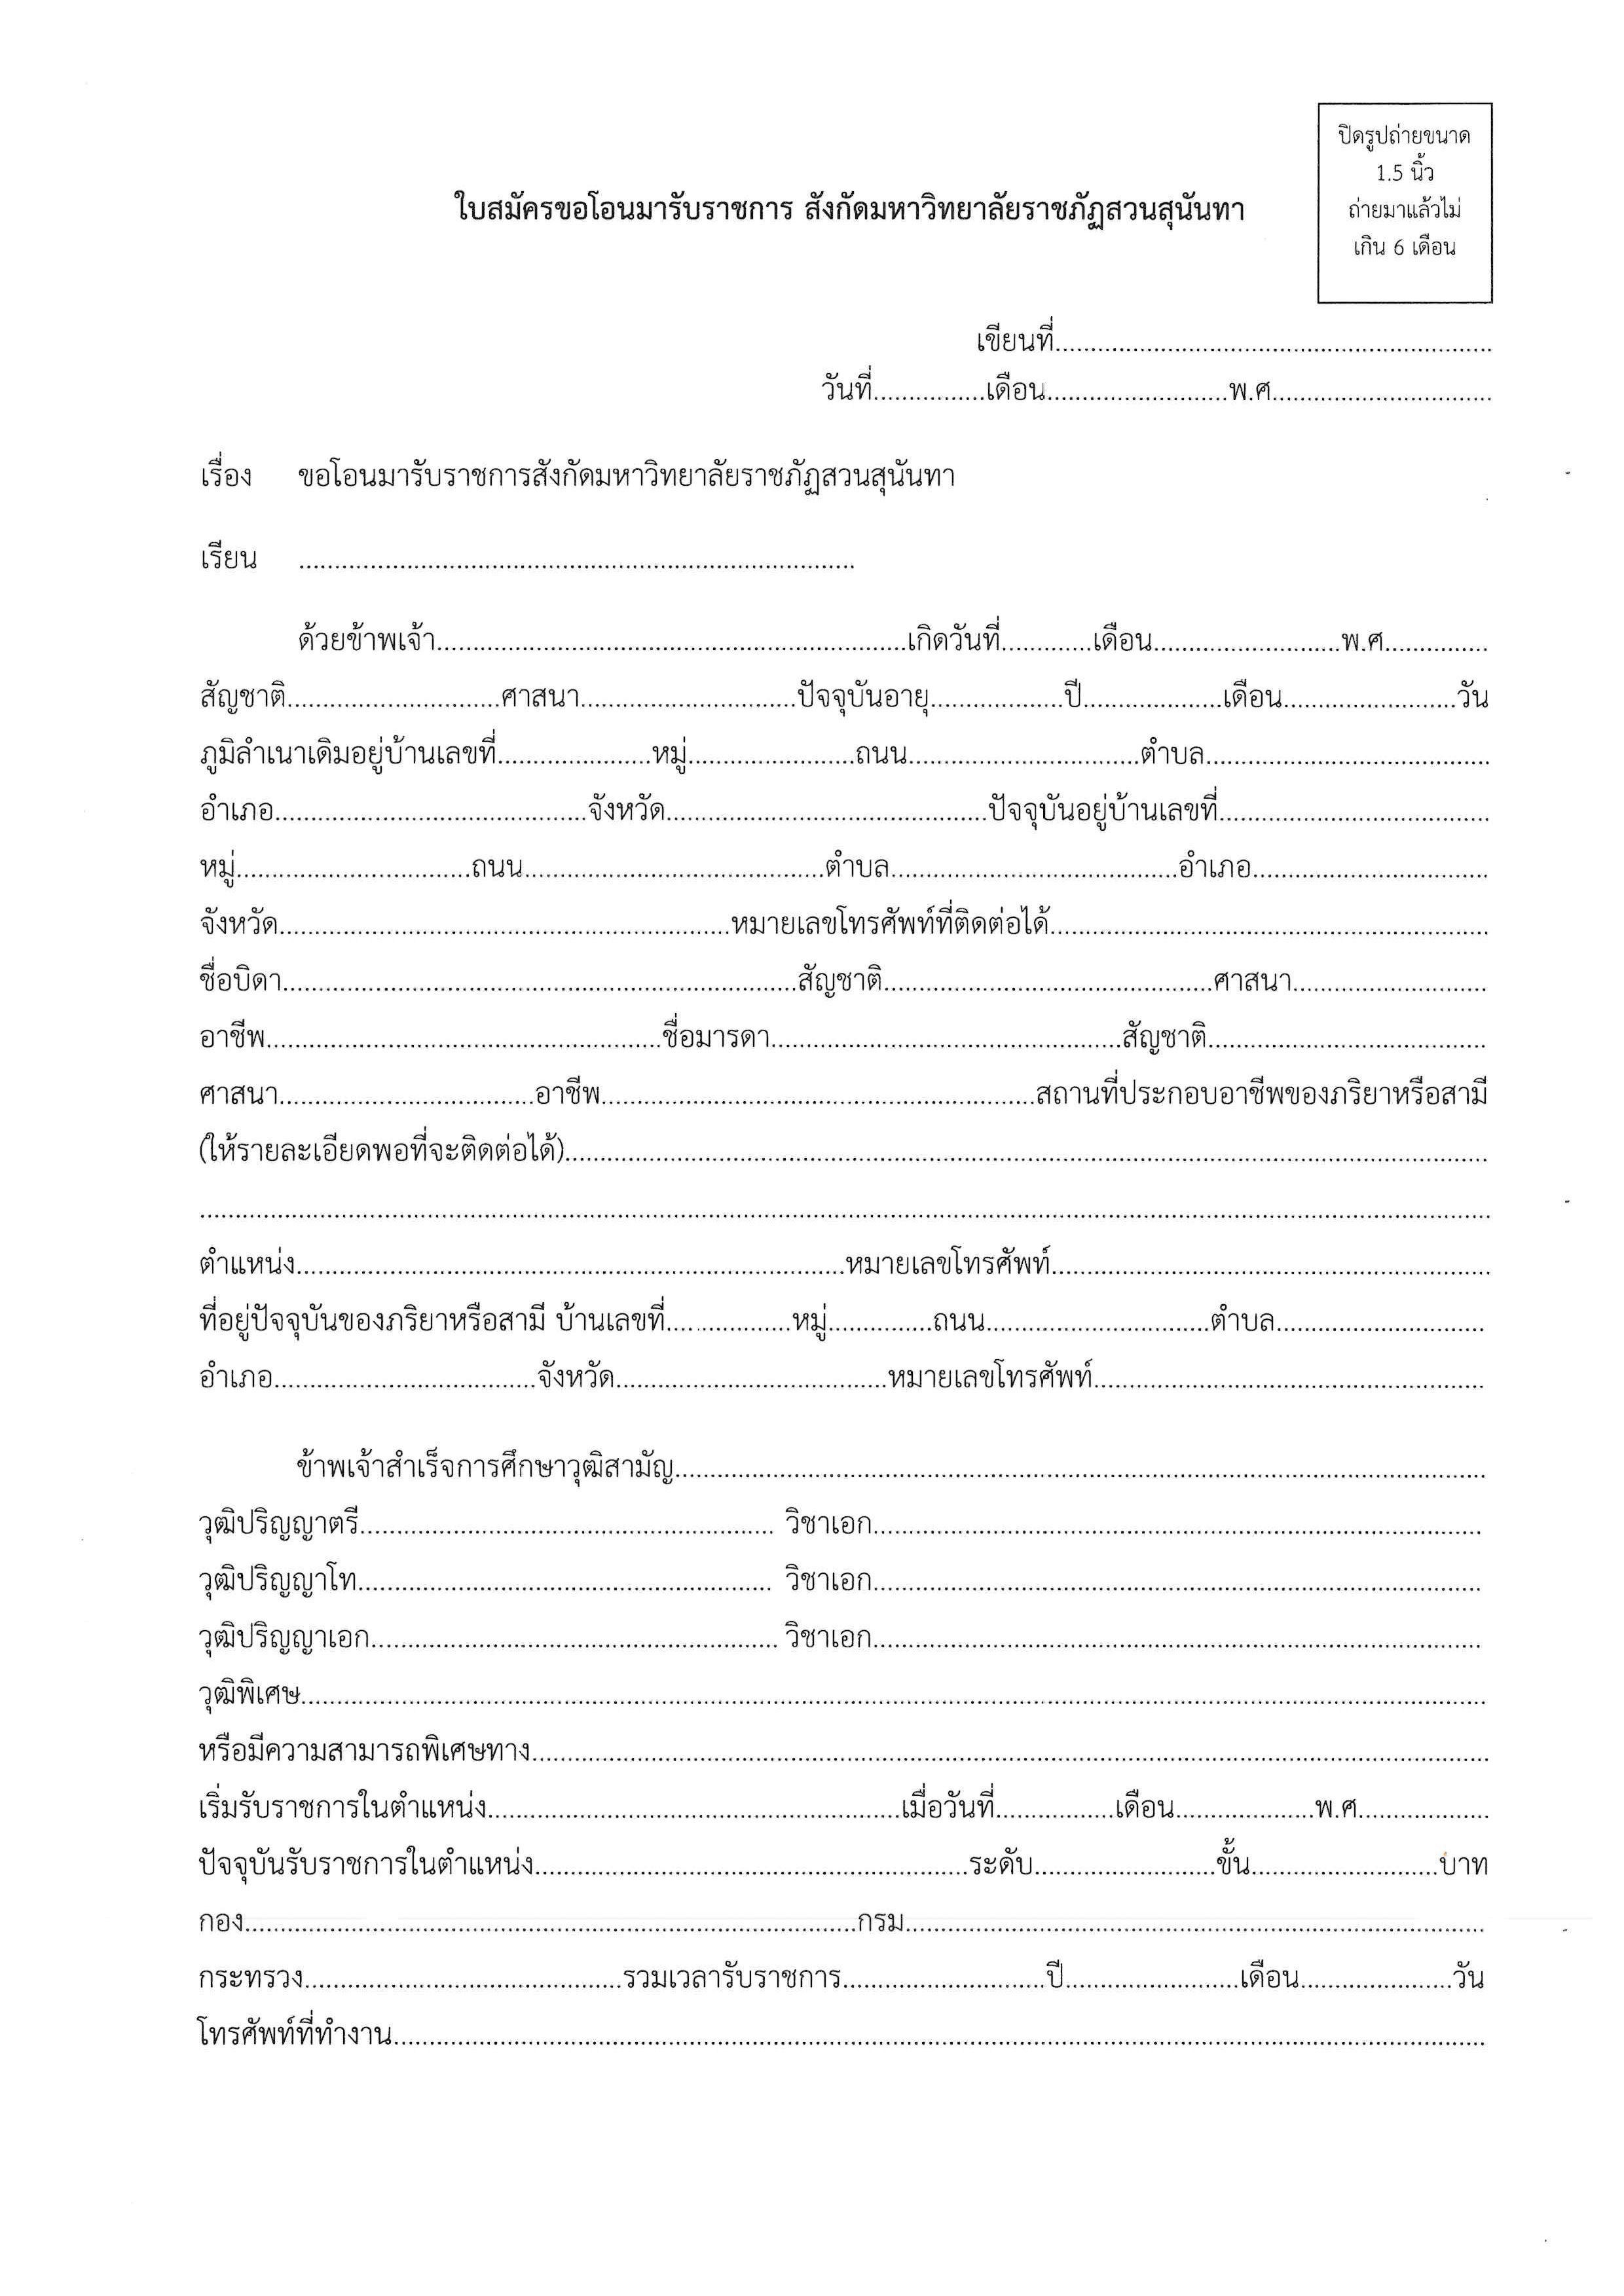 ปิดรูปถ่ายขนาด
1.5 นิ้ว
ถ่ายมาแล้วไม่
เกิน 6 เดือน
ใบสมัครขอโอนมารับราชการ สังกัดมหาวิทยาลัยราชภัฏสวนสุนันทา
เขียนที่..............................
วันที่................เดือน..........................พ.ศ...............................
เรื่อง ขอโอนมารับราชการสังกัดมหาวิทยาลัยราชภัฏสวนสุนันทา
เรียน ..............................
ด้วยข้าพเจ้า..............................เกิดวันที่.............เดือน..........................พ.ศ...............
สัญชาติ..............................ศาสนา..............................ปัจจุบันอายุ...................ปี....................เดือน.........................วัน
ภูมิลำเนาเดิมอยู่บ้านเลขที่......................หมู่........................ถนน..............................ตำบล..............................
อำเภอ..............................จังหวัด..............................ปัจจุบันอยู่บ้านเลขที่..............................
หมู่..............................ถนน..............................ตำบล..............................อำเภอ..............................
จังหวัด..............................หมายเลขโทรศัพท์ที่ติดต่อได้..............................
ชื่อบิดา..............................สัญชาติ..............................ศาสนา............................
อาชีพ..............................ชื่อมารดา..............................สัญชาติ..............................
ศาสนา..............................อาชีพ..............................สถานที่ประกอบอาชีพของภริยาหรือสามี
(ให้รายละเอียดพอที่จะติดต่อได้)..............................
..............................
ตำแหน่ง..............................หมายเลขโทรศัพท์..............................
ที่อยู่ปัจจุบันของภริยาหรือสามี บ้านเลขที่..................หมู่...............ถนน..............................ตำบล..............................
อำเภอ..............................จังหวัด..............................หมายเลขโทรศัพท์..............................
ข้าพเจ้าสำเร็จการศึกษาวุฒิสามัญ..............................
วุฒิปริญญาตรี.............................. วิชาเอก..............................
วุฒิปริญญาโท.............................. วิชาเอก..............................
วุฒิปริญญาเอก.............................. วิชาเอก..............................
วุฒิพิเศษ..............................
หรือมีความสามารถพิเศษทาง..............................
เริ่มรับราชการในตำแหน่ง..............................เมื่อวันที่.................เดือน....................พ.ศ...................
ปัจจุบันรับราชการในตำแหน่ง..............................ระดับ..........................ขั้น...........................บาท
กอง..............................กรม..............................
กระทรวง..............................รวมเวลารับราชการ.............................ปี.........................เดือน......................วัน
โทรศัพท์ที่ทำงาน..............................